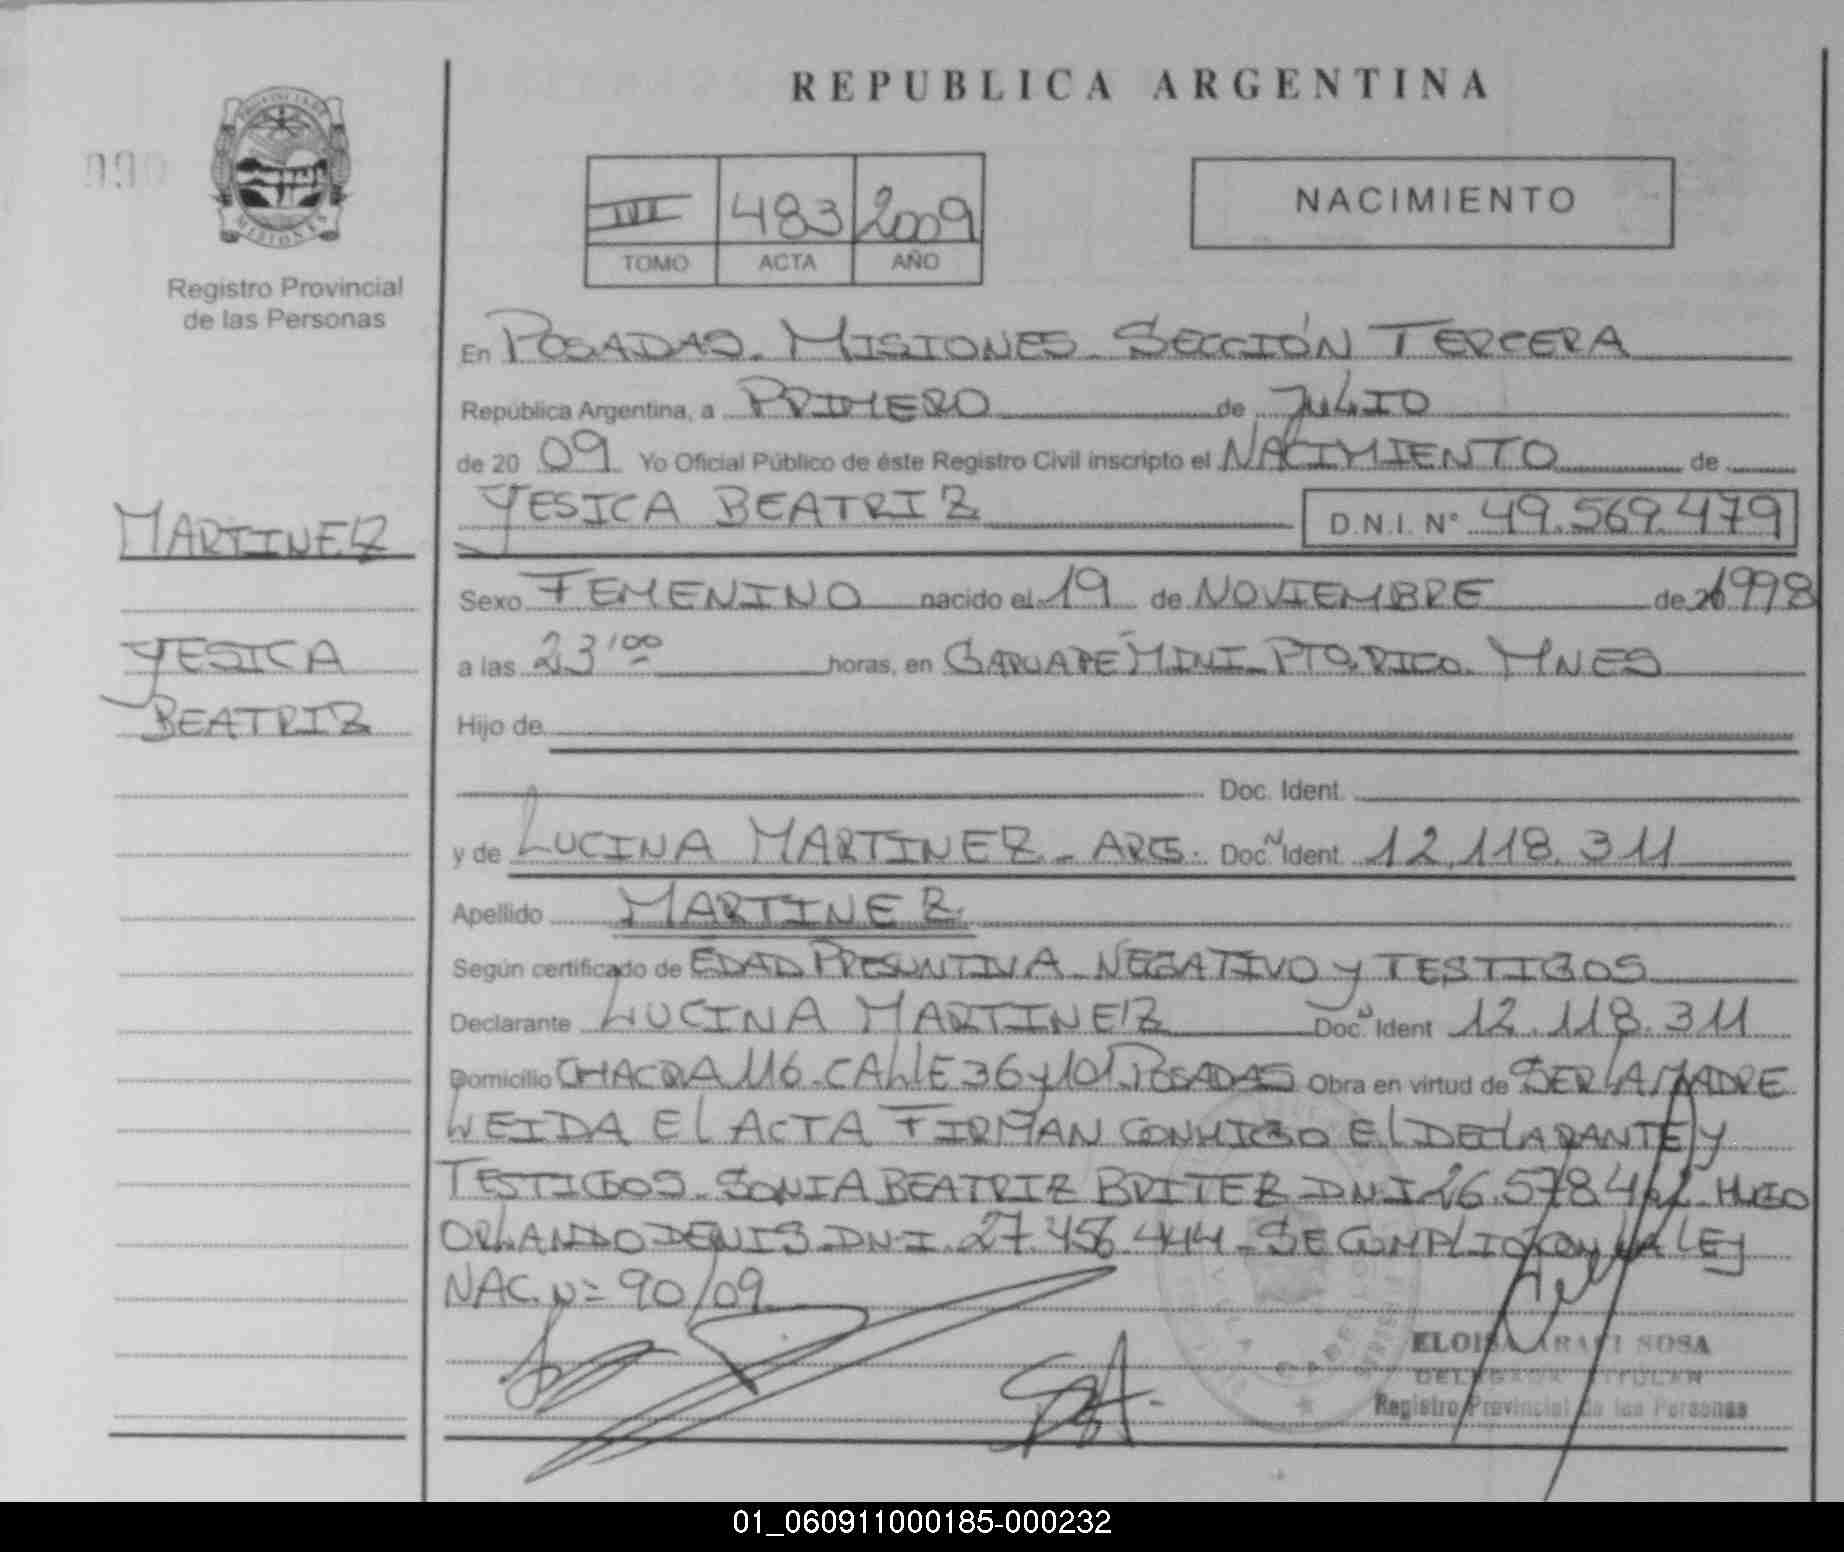 REPUBLICA ARGENTINA
PROVINCIA DE
MISIONES
Registro Provincial
de las Personas
III 483 2009
TOMO ACTA AÑO
NACIMIENTO
En POSADAS. MISIONES. SECCIÓN TERCERA
República Argentina, a PRIMERO de JULIO
de 20 09 Yo Oficial Público de éste Registro Civil inscripto el NACIMIENTO de
YESICA BEATRIZ D.N.I. N° 49.569.479
MARTINEZ
YESICA
BEATRIZ
Sexo FEMENINO nacido el 19 de NOVIEMBRE de 1998
a las 23'00 horas, en GARUAPE MINI. PTO. RICO. MNES
Hijo de
Doc. Ident.
y de LUCINA MARTINEZ - ARG. Doc. N Ident 12.118.311
Apellido MARTINEZ
Según certificado de EDAD PRESUNTIVA NEGATIVO y TESTIGOS
Declarante LUCINA MARTINEZ Doc. N Ident 12.118.311
Domicilio CHACRA 116. CALLE 36 y 101 POSADAS Obra en virtud de SER LA MADRE
LEIDA El ACTA FIRMAN CONMIGO El DEClARANTE y
TESTIGOS. SONIA BEATRIZ BRITEZ DNI 26.578.4 HUGO
ORLANDO DENIS DNI. 27.456.444. SE CUMPLIO CON LA LEY
NAC. N= 90/09
ELOISA ARASI SOSA
DELEGADA TITULAR
Registro Provincial de las Personas
01_060911000185-000232